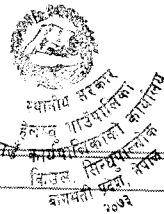 स्थानीय सरकार
गाउँपालिका
कार्यपालिकाको कार्यालय
सिन्धुपाल्चोक
बागमती प्रदेश, नेपाल
२०७३